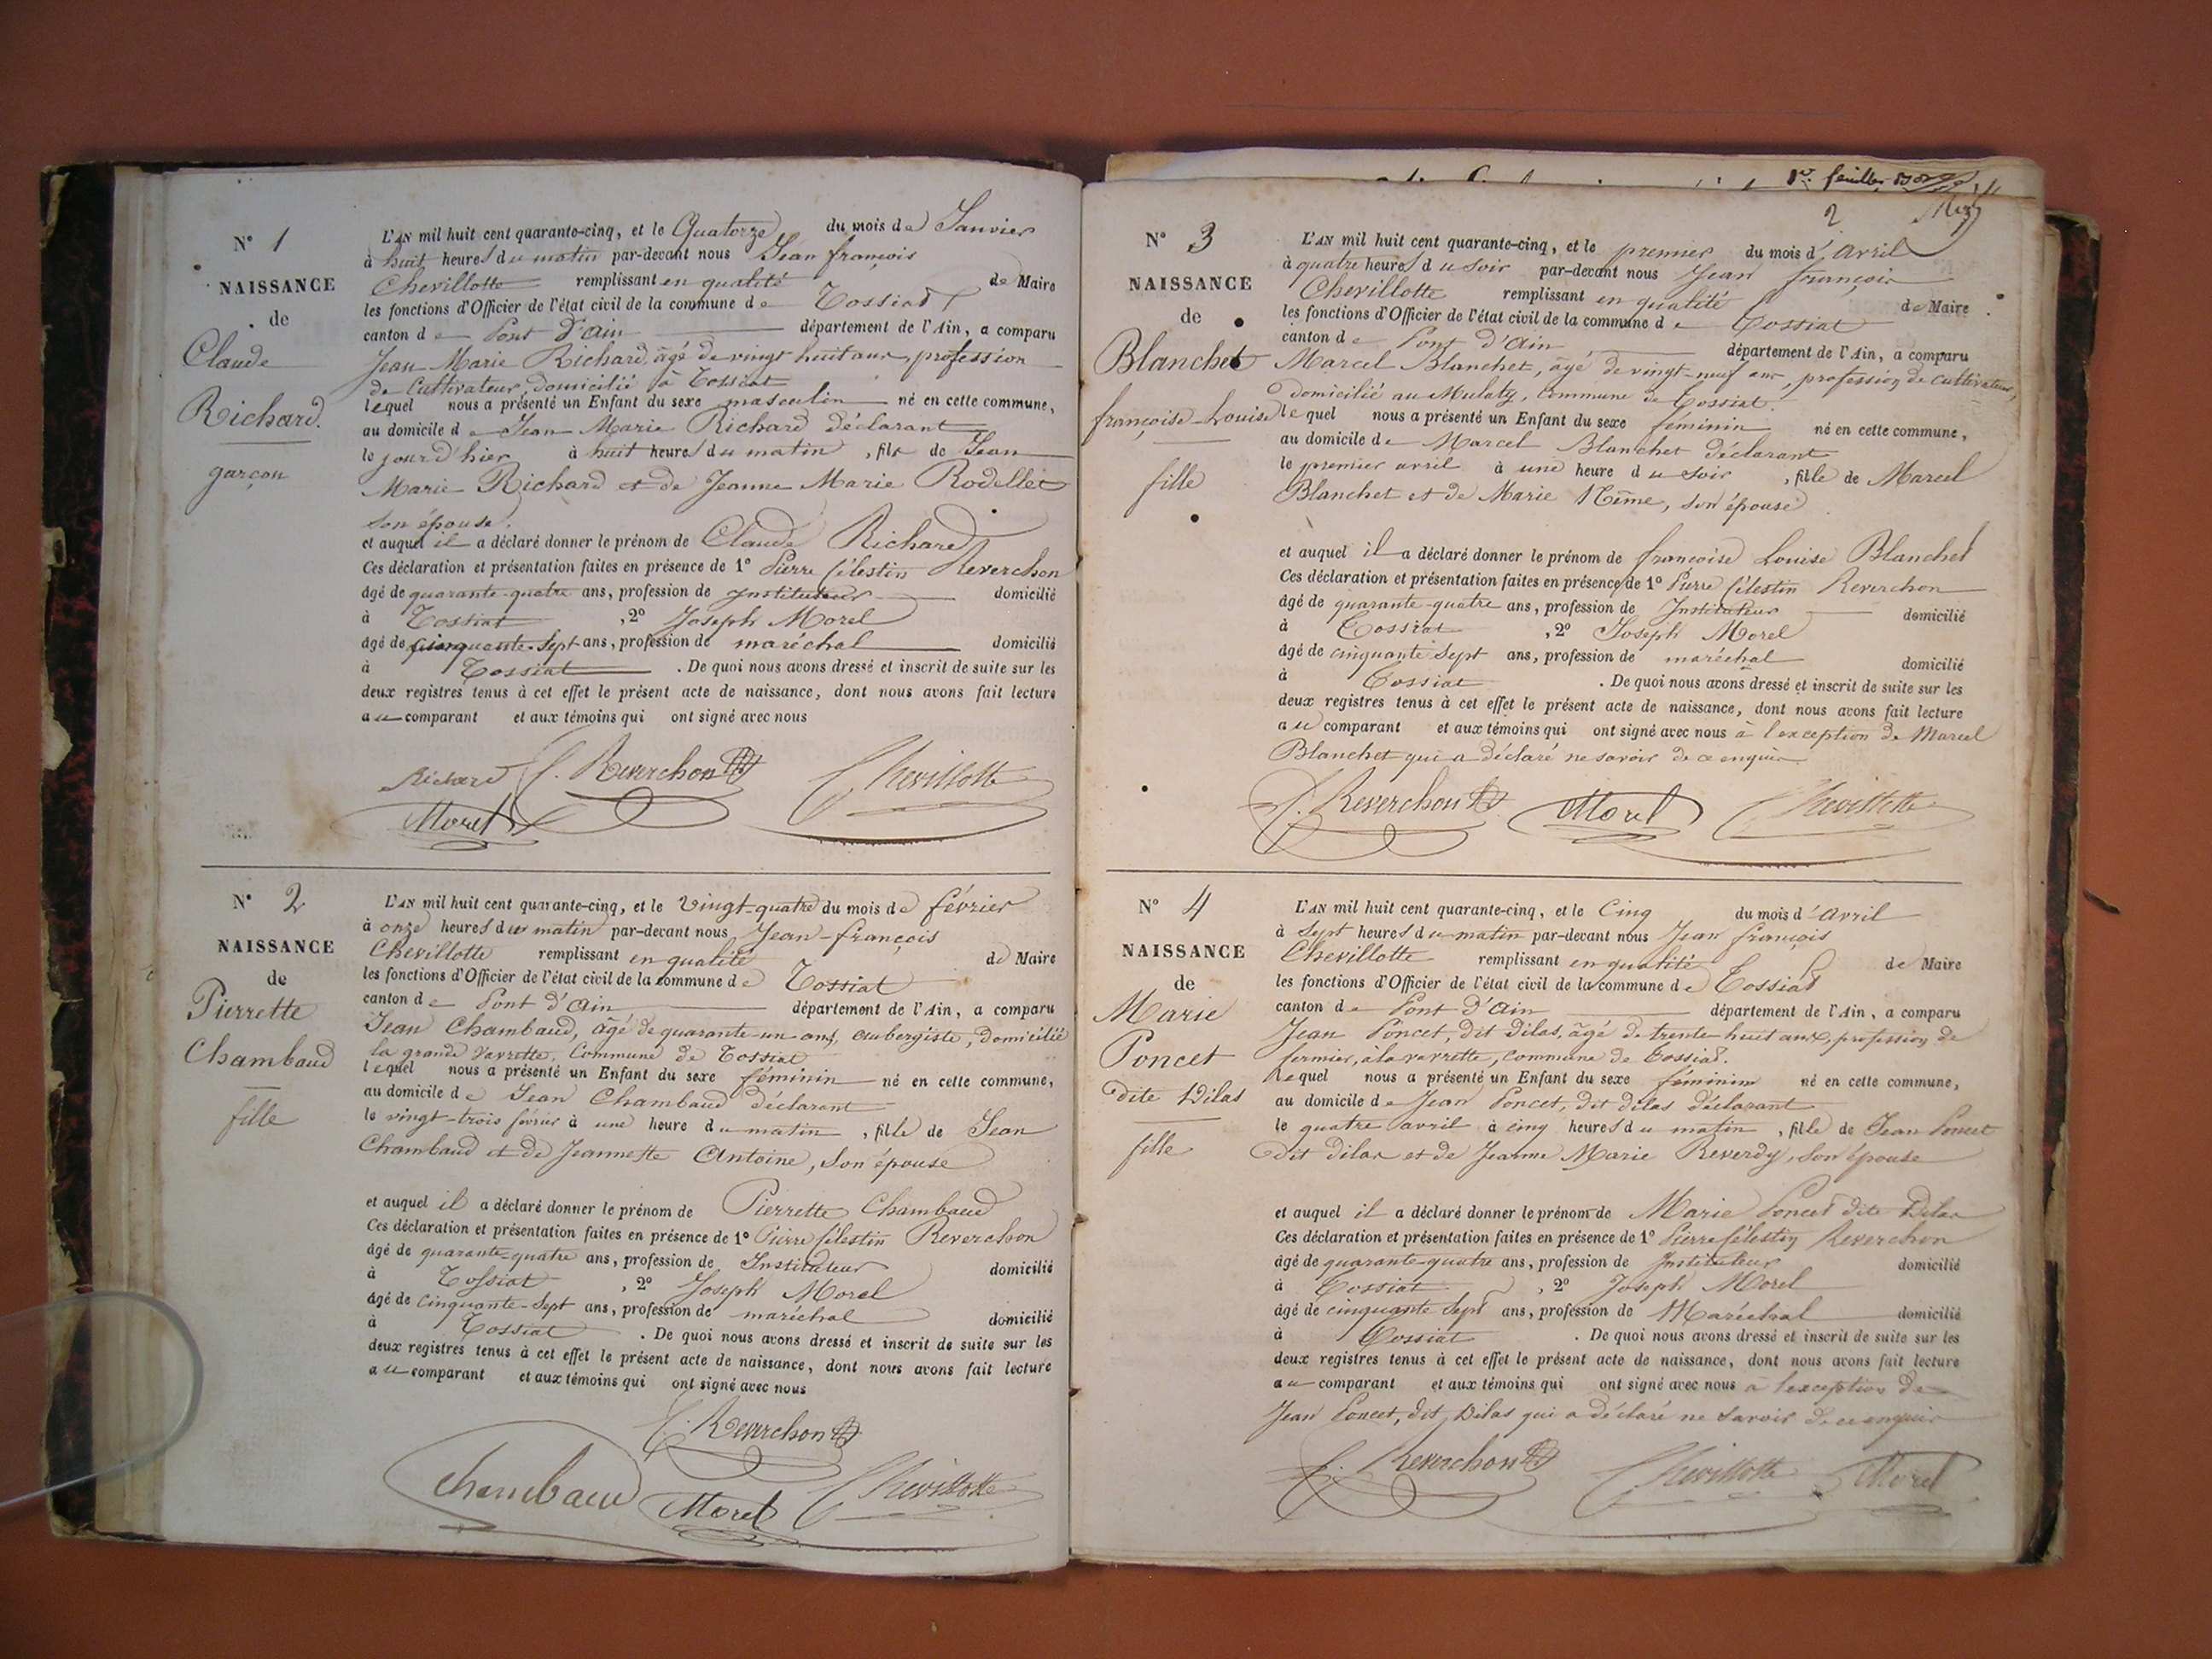 N° 1
NAISSANCE
de
Claude
Richard.
garçon
L'AN mil huit cent quarante-cinq, et le Quatorze du mois de Janvier
à huit heures du matin par-devant nous Jean françois
Chevillotte remplissant en qualité de Maire
les fonctions d'Officier de l'état civil de la commune de Tossiat
canton de Pont d'Ain département de l'Ain, a comparu
Jean Marie Richard, âgé de vingt huit ans, profession
de Cultivateur, domicilié à Tossiat
lequel nous a présenté un Enfant du sexe masculin né en cette commune,
au domicile de Jean Marie Richard déclarant
le jour d'hier à huit heures du matin, fils de Jean
Marie Richard et de Jeanne Marie Rodellet
son épouse.
et auquel il a déclaré donner le prénom de Claude Richard
Ces déclaration et présentation faites en présence de 1° Pierre Célestin Reverchon
âgé de quarante-quatre ans, profession de Instituteur domicilié
à Tossiat, 2° Joseph Morel
âgé de cinquante-Sept ans, profession de maréchal domicilié
à Tossiat. De quoi nous avons dressé et inscrit de suite sur les
deux registres tenus à cet effet le présent acte de naissance, dont nous avons fait lecture
au comparant et aux témoins qui ont signé avec nous
Richard C. Reverchon Chevillotte
Morel
N° 2
NAISSANCE
de
Pierrette
Chambaud
fille
L'AN mil huit cent quarante-cinq, et le Vingt-quatre du mois de février
à onze heures du matin par-devant nous Jean-françois
Chevillotte remplissant en qualité de Maire
les fonctions d'Officier de l'état civil de la commune de Tossiat
canton de Pont d'Ain département de l'Ain, a comparu
Jean Chambaud, âgé de quarante-un ans, aubergiste, domicilié
la grande Vavrette, Commune de Tossiat
lequel nous a présenté un Enfant du sexe féminin né en cette commune,
au domicile de Jean Chambaud déclarant
le vingt-trois février à une heure du matin, fille de Jean
Chambaud et de Jeannette Antoine, Son épouse
et auquel il a déclaré donner le prénom de Pierrette Chambaud
Ces déclaration et présentation faites en présence de 1° Pierre Célestin Reverchon
âgé de quarante-quatre ans, profession de Instituteur domicilié
à Tossiat, 2° Joseph Morel
âgé de cinquante-Sept ans, profession de maréchal domicilié
à Tossiat. De quoi nous avons dressé et inscrit de suite sur les
deux registres tenus à cet effet le présent acte de naissance, dont nous avons fait lecture
au comparant et aux témoins qui ont signé avec nous
C. Reverchon
Chambaud Morel Chevillotte
feuillet
2
N° 3
NAISSANCE
de
Blanchet
françoise-Louise
fille
L'AN mil huit cent quarante-cinq, et le premier du mois d'avril
à quatre heures du soir par-devant nous Jean françois
Chevillotte remplissant en qualité de Maire
les fonctions d'Officier de l'état civil de la commune de Tossiat
canton de Pont d'Ain département de l'Ain, a comparu
Marcel Blanchet, âgé de vingt-neuf ans, profession de cultivateur,
domicilié au Mulatz, Commune de Tossiat.
lequel nous a présenté un Enfant du sexe féminin né en cette commune,
au domicile de Marcel Blanchet déclarant
le premier avril à une heure du soir, fille de Marcel
Blanchet et de Marie Même, son épouse
et auquel il a déclaré donner le prénom de françoise Louise Blanchet
Ces déclaration et présentation faites en présence de 1° Pierre Célestin Reverchon
âgé de quarante-quatre ans, profession de Instituteur domicilié
à Tossiat, 2° Joseph Morel
âgé de cinquante Sept ans, profession de maréchal domicilié
à Tossiat. De quoi nous avons dressé et inscrit de suite sur les
deux registres tenus à cet effet le présent acte de naissance, dont nous avons fait lecture
au comparant et aux témoins qui ont signé avec nous à l'exception de Marcel
Blanchet qui a déclaré ne savoir de ce enquis
C. Reverchon Morel Chevillotte
N° 4
NAISSANCE
de
Marie
Poncet
dite Dilas
fille
L'AN mil huit cent quarante-cinq, et le Cinq du mois d'avril
à Sept heures du matin par-devant nous Jean françois
Chevillotte remplissant en qualité de Maire
les fonctions d'Officier de l'état civil de la commune de Tossiat
canton de Pont d'Ain département de l'Ain, a comparu
Jean Poncet, dit Dilas, âgé de trente huit ans, profession de
fermier, à la vavrette, commune de Tossiat.
Lequel nous a présenté un Enfant du sexe féminin né en cette commune,
au domicile de Jean Poncet, dit dilas déclarant
le quatre avril à cinq heures du matin, fille de Jean Poncet
dit Dilas et de Jeanne Marie Reverdy, Son épouse
et auquel il a déclaré donner le prénom de Marie Poncet dite Dilas
Ces déclaration et présentation faites en présence de 1° Pierre Célestin Reverchon
âgé de quarante-quatre ans, profession de Instituteur domicilié
à Tossiat, 2° Joseph Morel
âgé de cinquante Sept ans, profession de Maréchal domicilié
à Tossiat. De quoi nous avons dressé et inscrit de suite sur les
deux registres tenus à cet effet le présent acte de naissance, dont nous avons fait lecture
au comparant et aux témoins qui ont signé avec nous à l'exception de
Jean Poncet, dit Dilas qui a déclaré ne savoir de ce enquis
C. Reverchon Chevillotte Morel